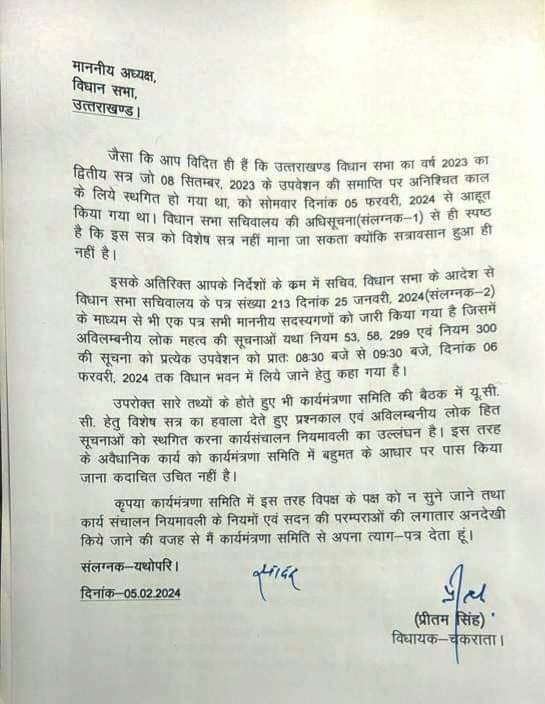 माननीय अध्यक्ष,
विधान सभा,
उत्तराखण्ड।
जैसा कि आप विदित ही हैं कि उत्तराखण्ड विधान सभा का वर्ष 2023 का
द्वितीय सत्र जो 08 सितम्बर, 2023 के उपवेशन की समाप्ति पर अनिश्चित काल
के लिये स्थगित हो गया था, को सोमवार दिनांक 05 फरवरी, 2024 से आहूत
किया गया था। विधान सभा सचिवालय की अधिसूचना(संलग्नक–1) से ही स्पष्ठ
है कि इस सत्र को विशेष सत्र नहीं माना जा सकता क्योंकि सत्रावसान हुआ ही
नहीं है।
इसके अतिरिक्त आपके निर्देशों के कम में सचिव, विधान सभा के आदेश से
विधान सभा सचिवालय के पत्र संख्या 213 दिनांक 25 जनवरी, 2024(संलग्नक–2)
के माध्यम से भी एक पत्र सभी माननीय सदस्यगणों को जारी किया गया है जिसमें
अविलम्बनीय लोक महत्व की सूचनाओं यथा नियम 53, 58, 299 एवं नियम 300
की सूचना को प्रत्येक उपवेशन को प्रातः 08:30 बजे से 09:30 बजे, दिनांक 06
फरवरी, 2024 तक विधान भवन में लिये जाने हेतु कहा गया है।
उपरोक्त सारे तथ्यों के होते हुए भी कार्यमंत्रणा समिति की बैठक में यू.सी.
सी. हेतु विशेष सत्र का हवाला देते हुए प्रश्नकाल एवं अविलम्बनीय लोक हित
सूचनाओं को स्थगित करना कार्यसंचालन नियमावली का उल्लंघन है। इस तरह
के अवैधानिक कार्य को कार्यमंत्रणा समिति में बहुमत के आधार पर पास किया
जाना कदाचित उचित नहीं है।
कृपया कार्यमंत्रणा समिति में इस तरह विपक्ष के पक्ष को न सुने जाने तथा
कार्य संचालन नियमावली के नियमों एवं सदन की परम्पराओं की लगातार अनदेखी
किये जाने की वजह से मैं कार्यमंत्रणा समिति से अपना त्याग–पत्र देता हूं।
संलग्नक–यथोपरि।
सादर
दिनांक–05.02.2024
(प्रीतम सिंह)
विधायक–चकराता।